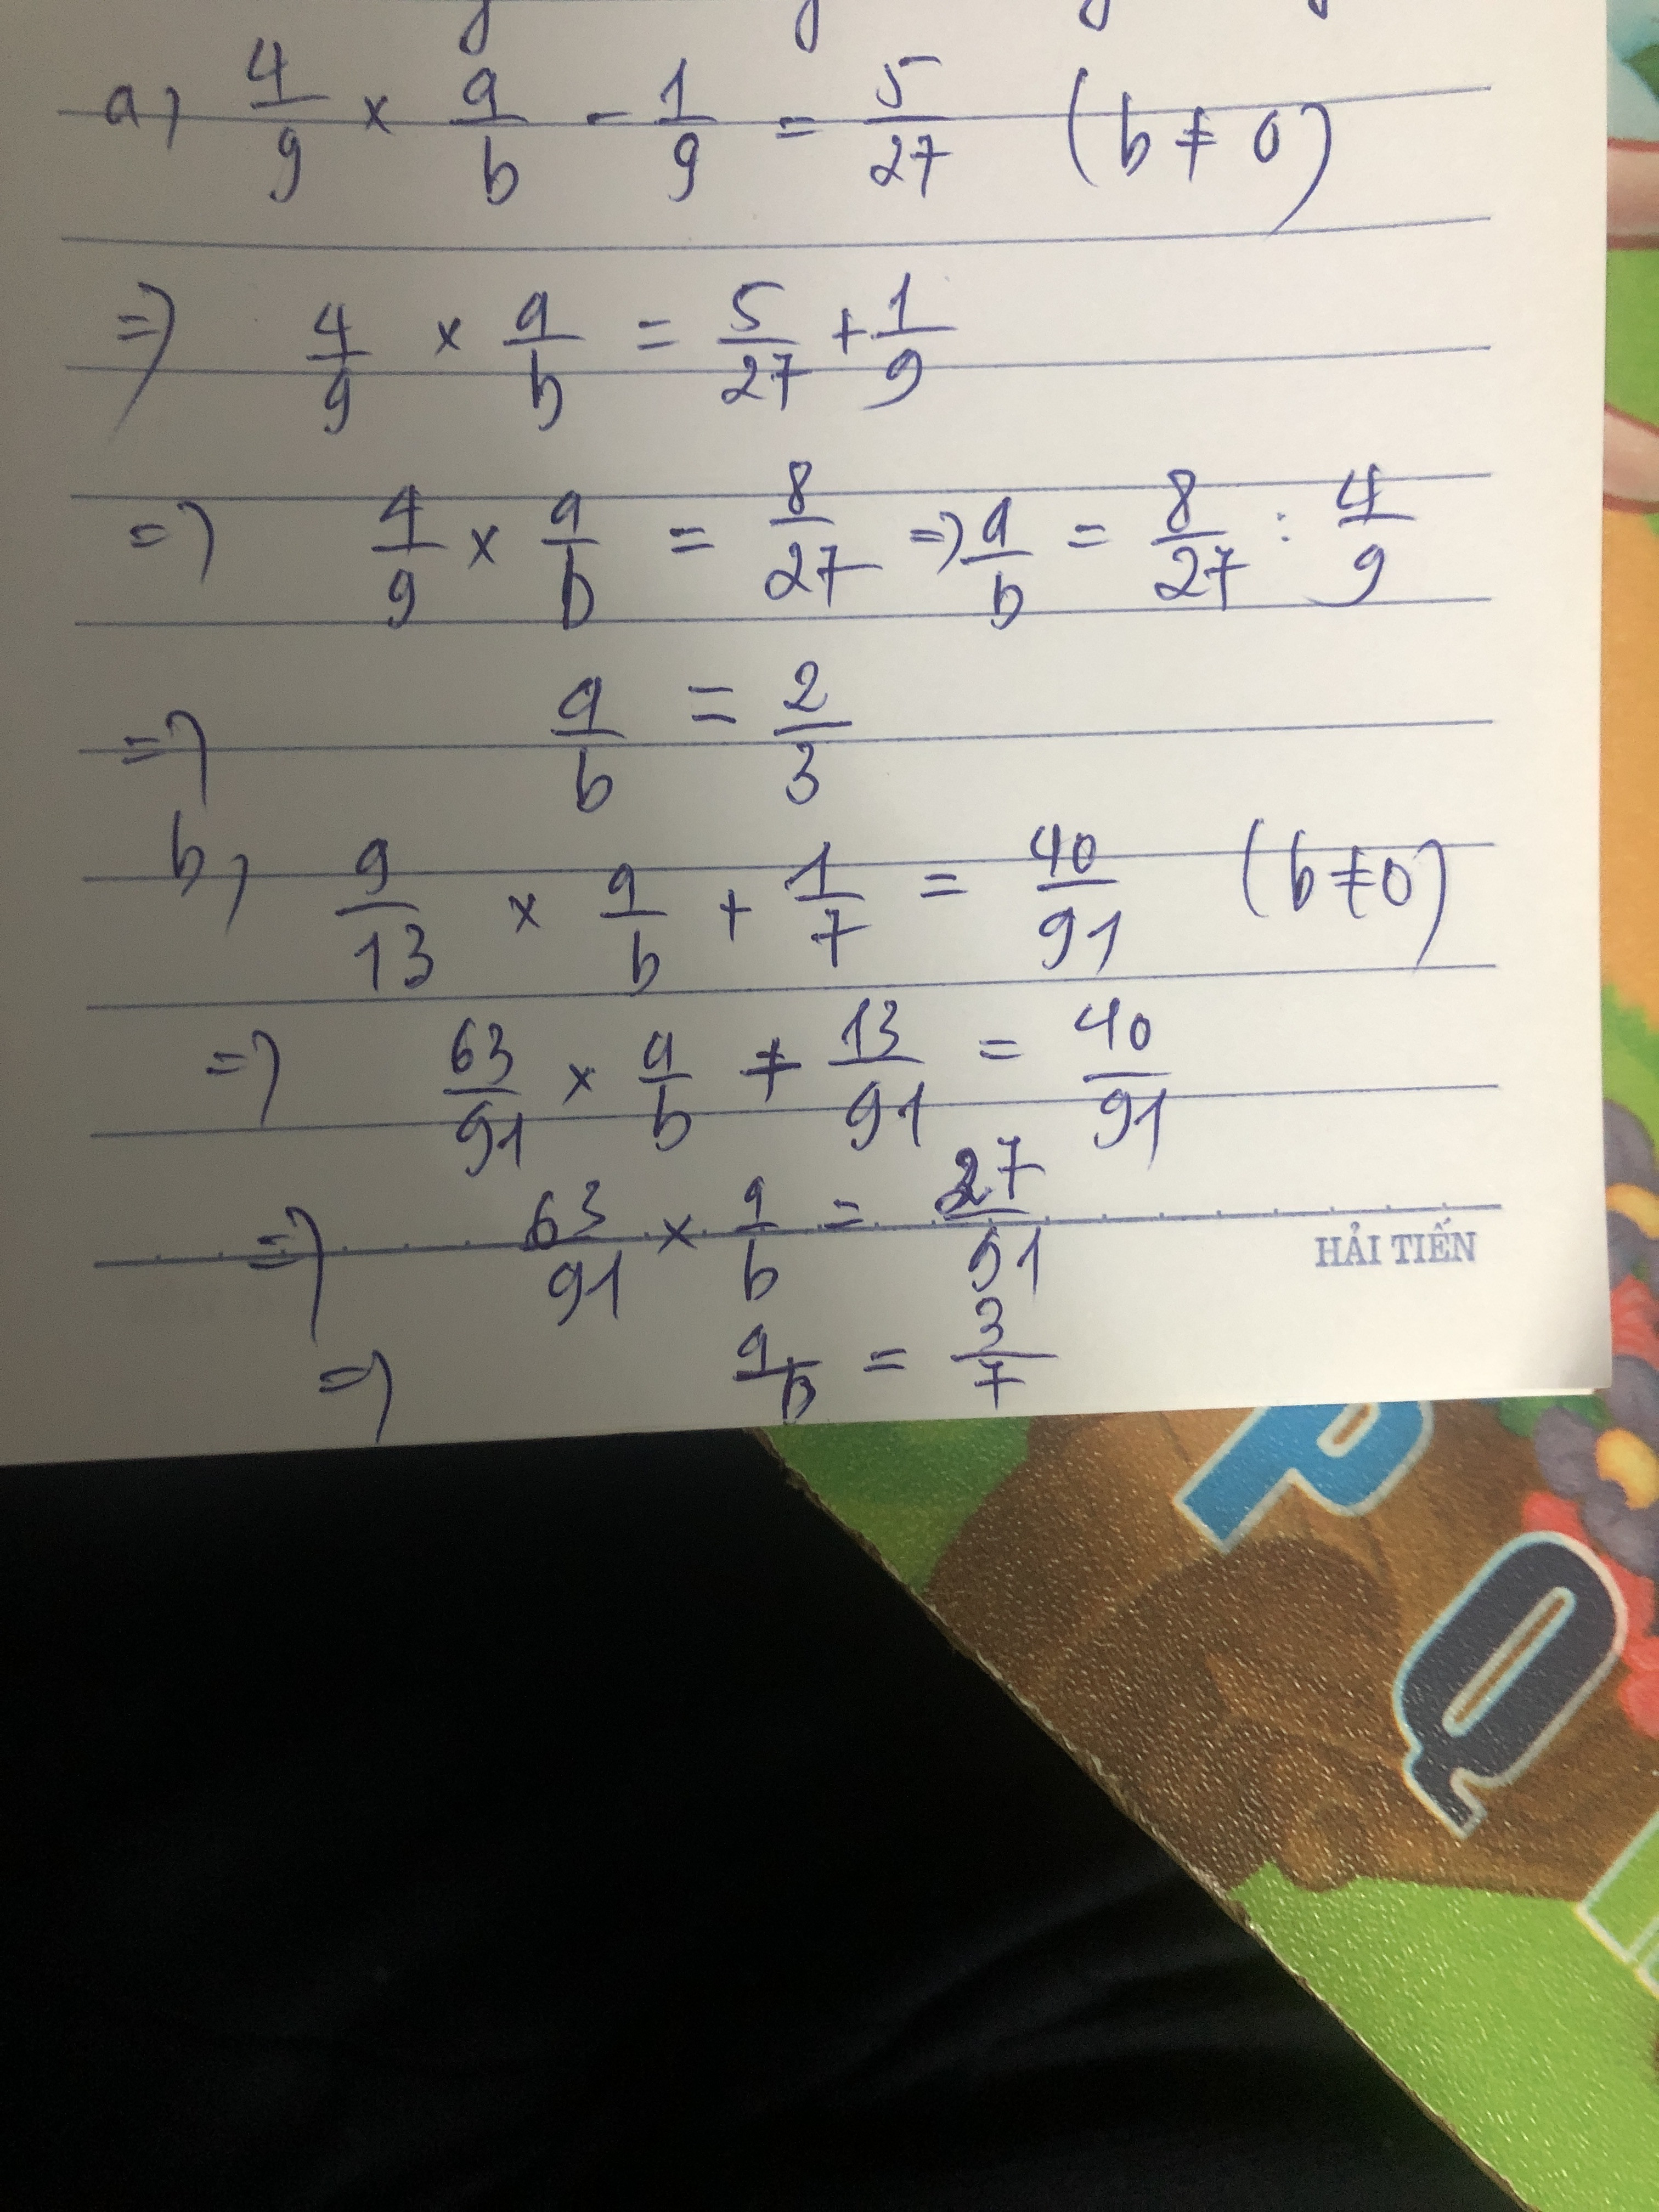 a, 4/9 × a/b - 1/9 = 5/27 (b ≠ 0)
=> 4/9 × a/b = 5/27 + 1/9
=> 4/9 × a/b = 8/27 => a/b = 8/27 : 4/9
=> a/b = 2/3
b, 9/13 × a/b + 1/7 = 40/91 (b ≠ 0)
=> 63/91 × a/b + 13/91 = 40/91
=> 63/91 × a/b = 27/91
HẢI TIẾN
=> a/b = 3/7
P
Q